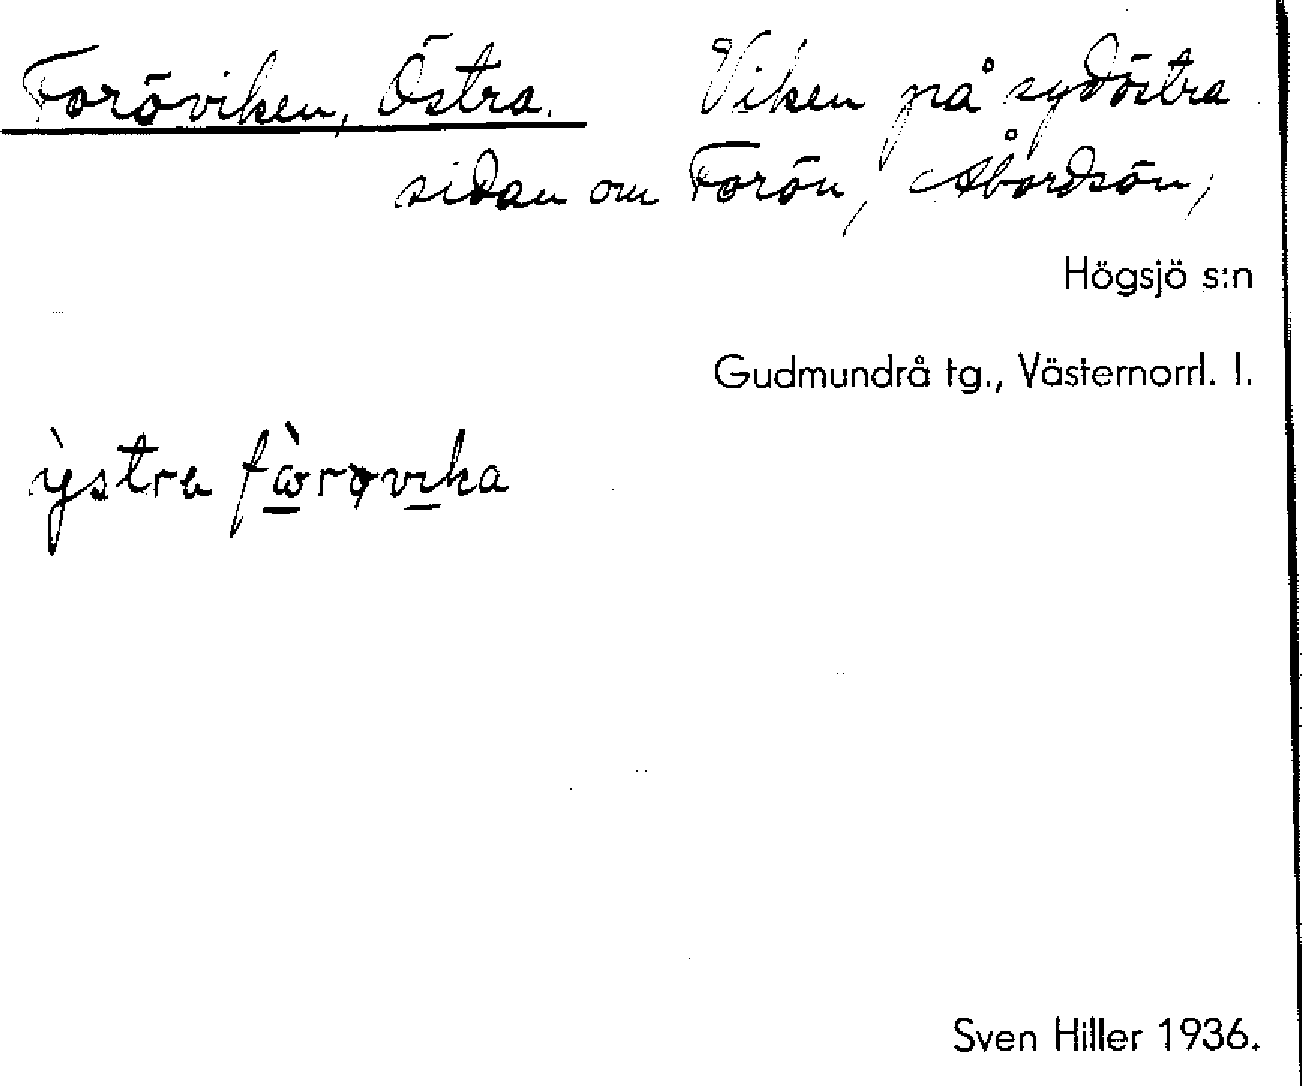 Foröviken, Östra. Viken på sydöstra
sidan om Forön, Åbordsön,
Högsjö s:n
Gudmundrå tg., Västernorrl. l.
ỳstra fὼrøvika
Sven Hiller 1936.